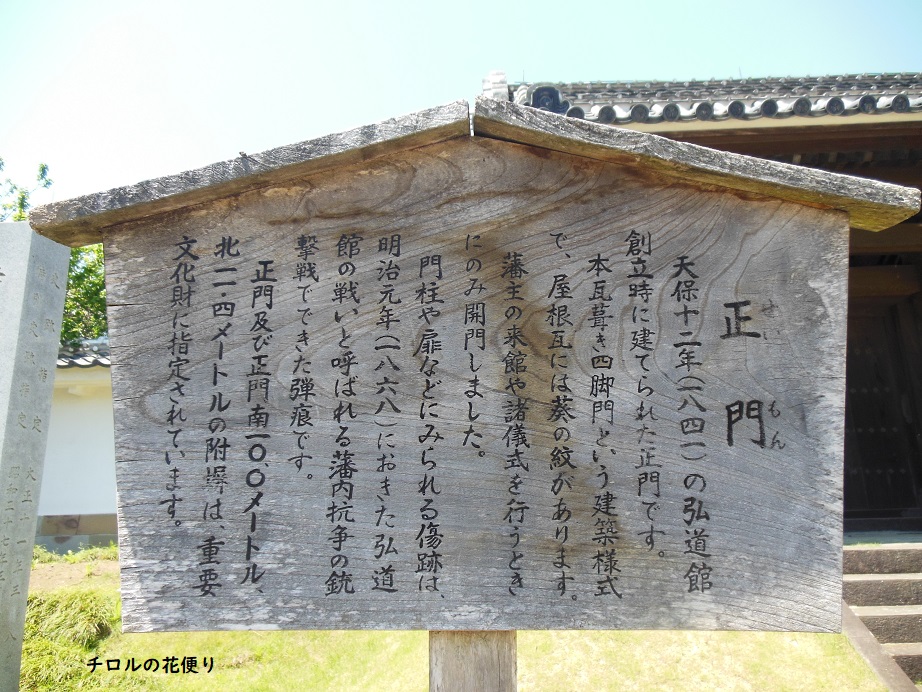 正門
せいもん
天保十二年(一八四一)の弘道館
創立時に建てられた正門です。
本瓦葺き四脚門という建築様式
で、屋根瓦には葵の紋があります。
藩主の来館や諸儀式を行うとき
にのみ開門しました。
門柱や扉などにみられる傷跡は、
明治元年(一八六八)におきた弘道
館の戦いと呼ばれる藩内抗争の銃
撃戦でできた弾痕です。
正門及び正門南一〇.〇メートル、
北二一・四メートルの附塀は、重要
文化財に指定されています。
チロルの花便り